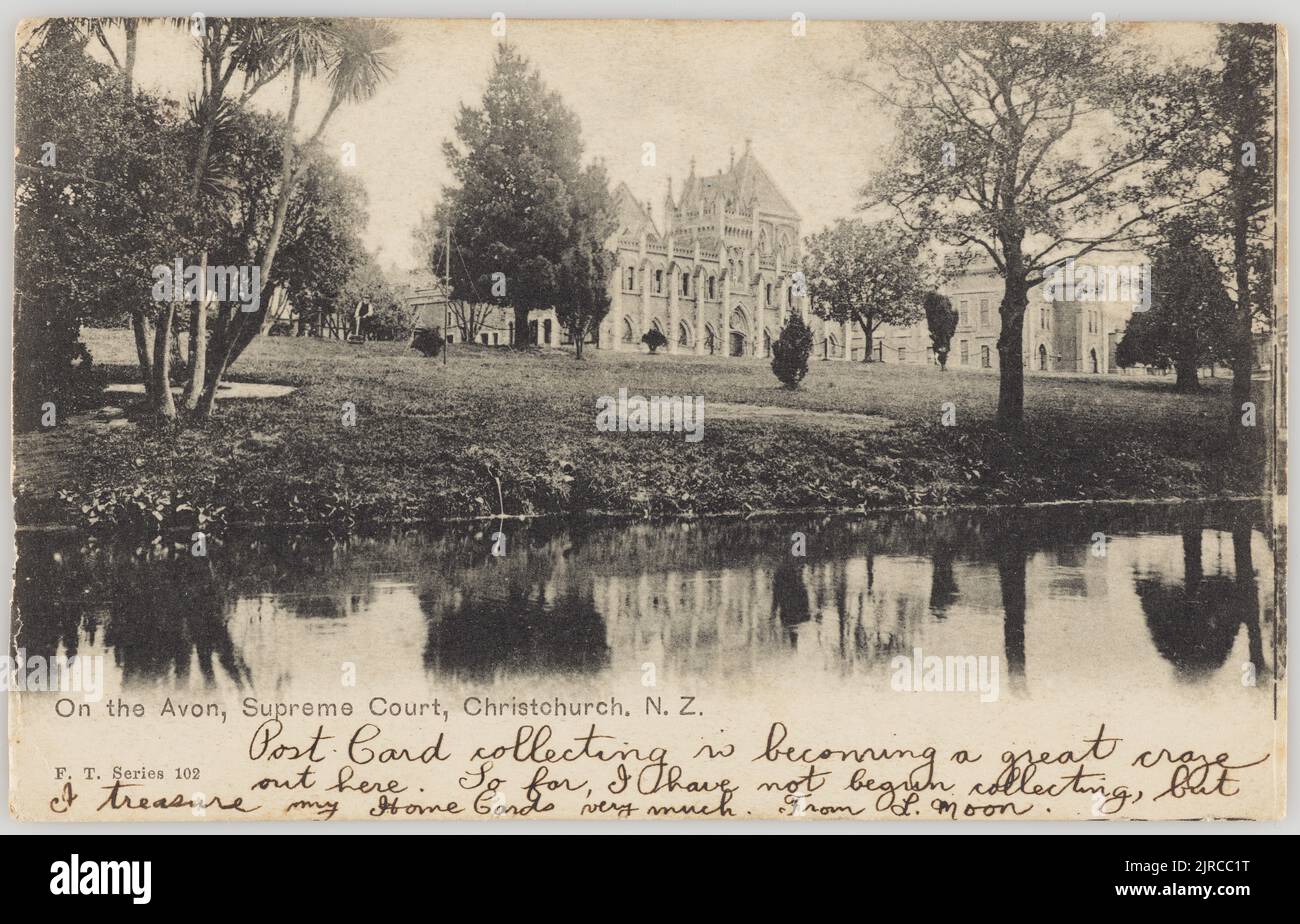 On the Avon, Supreme Court, Christchurch. N. Z.
Post Card collecting is becoming a great craze
F. T. Series 102
out here. So far, I have not begun collecting, but
I treasure my Home Cards very much. From L. Moon.
alamy
Image ID: 2JRCC1T
www.alamy.com